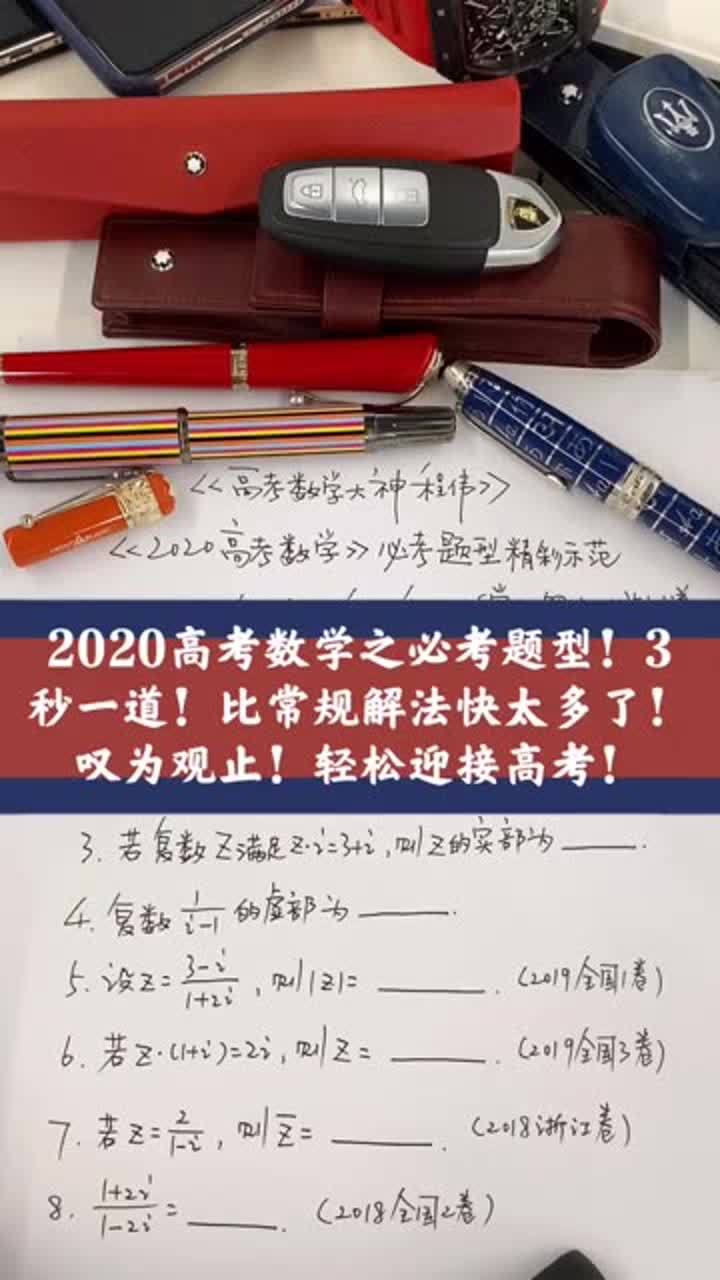 <<高考数学大神程伟>>
<<2020高考数学>>必考题型精彩示范
2020高考数学之必考题型！3
秒一道！比常规解法快太多了！
叹为观止！轻松迎接高考！
3. 若复数Z满足Z·i=3+i,则Z的实部为____.
4. 复数 1/(i-1) 的虚部为____.
5. 设Z=(3-i)/(1+2i), 则|Z|=____. (2019全国1卷)
6. 若Z·(1+i)=2i, 则Z=____. (2019全国3卷)
7. 若Z=2/(1-i), 则Z̅=____. (2018浙江卷)
8. (1+2i)/(1-2i)=____. (2018全国2卷)